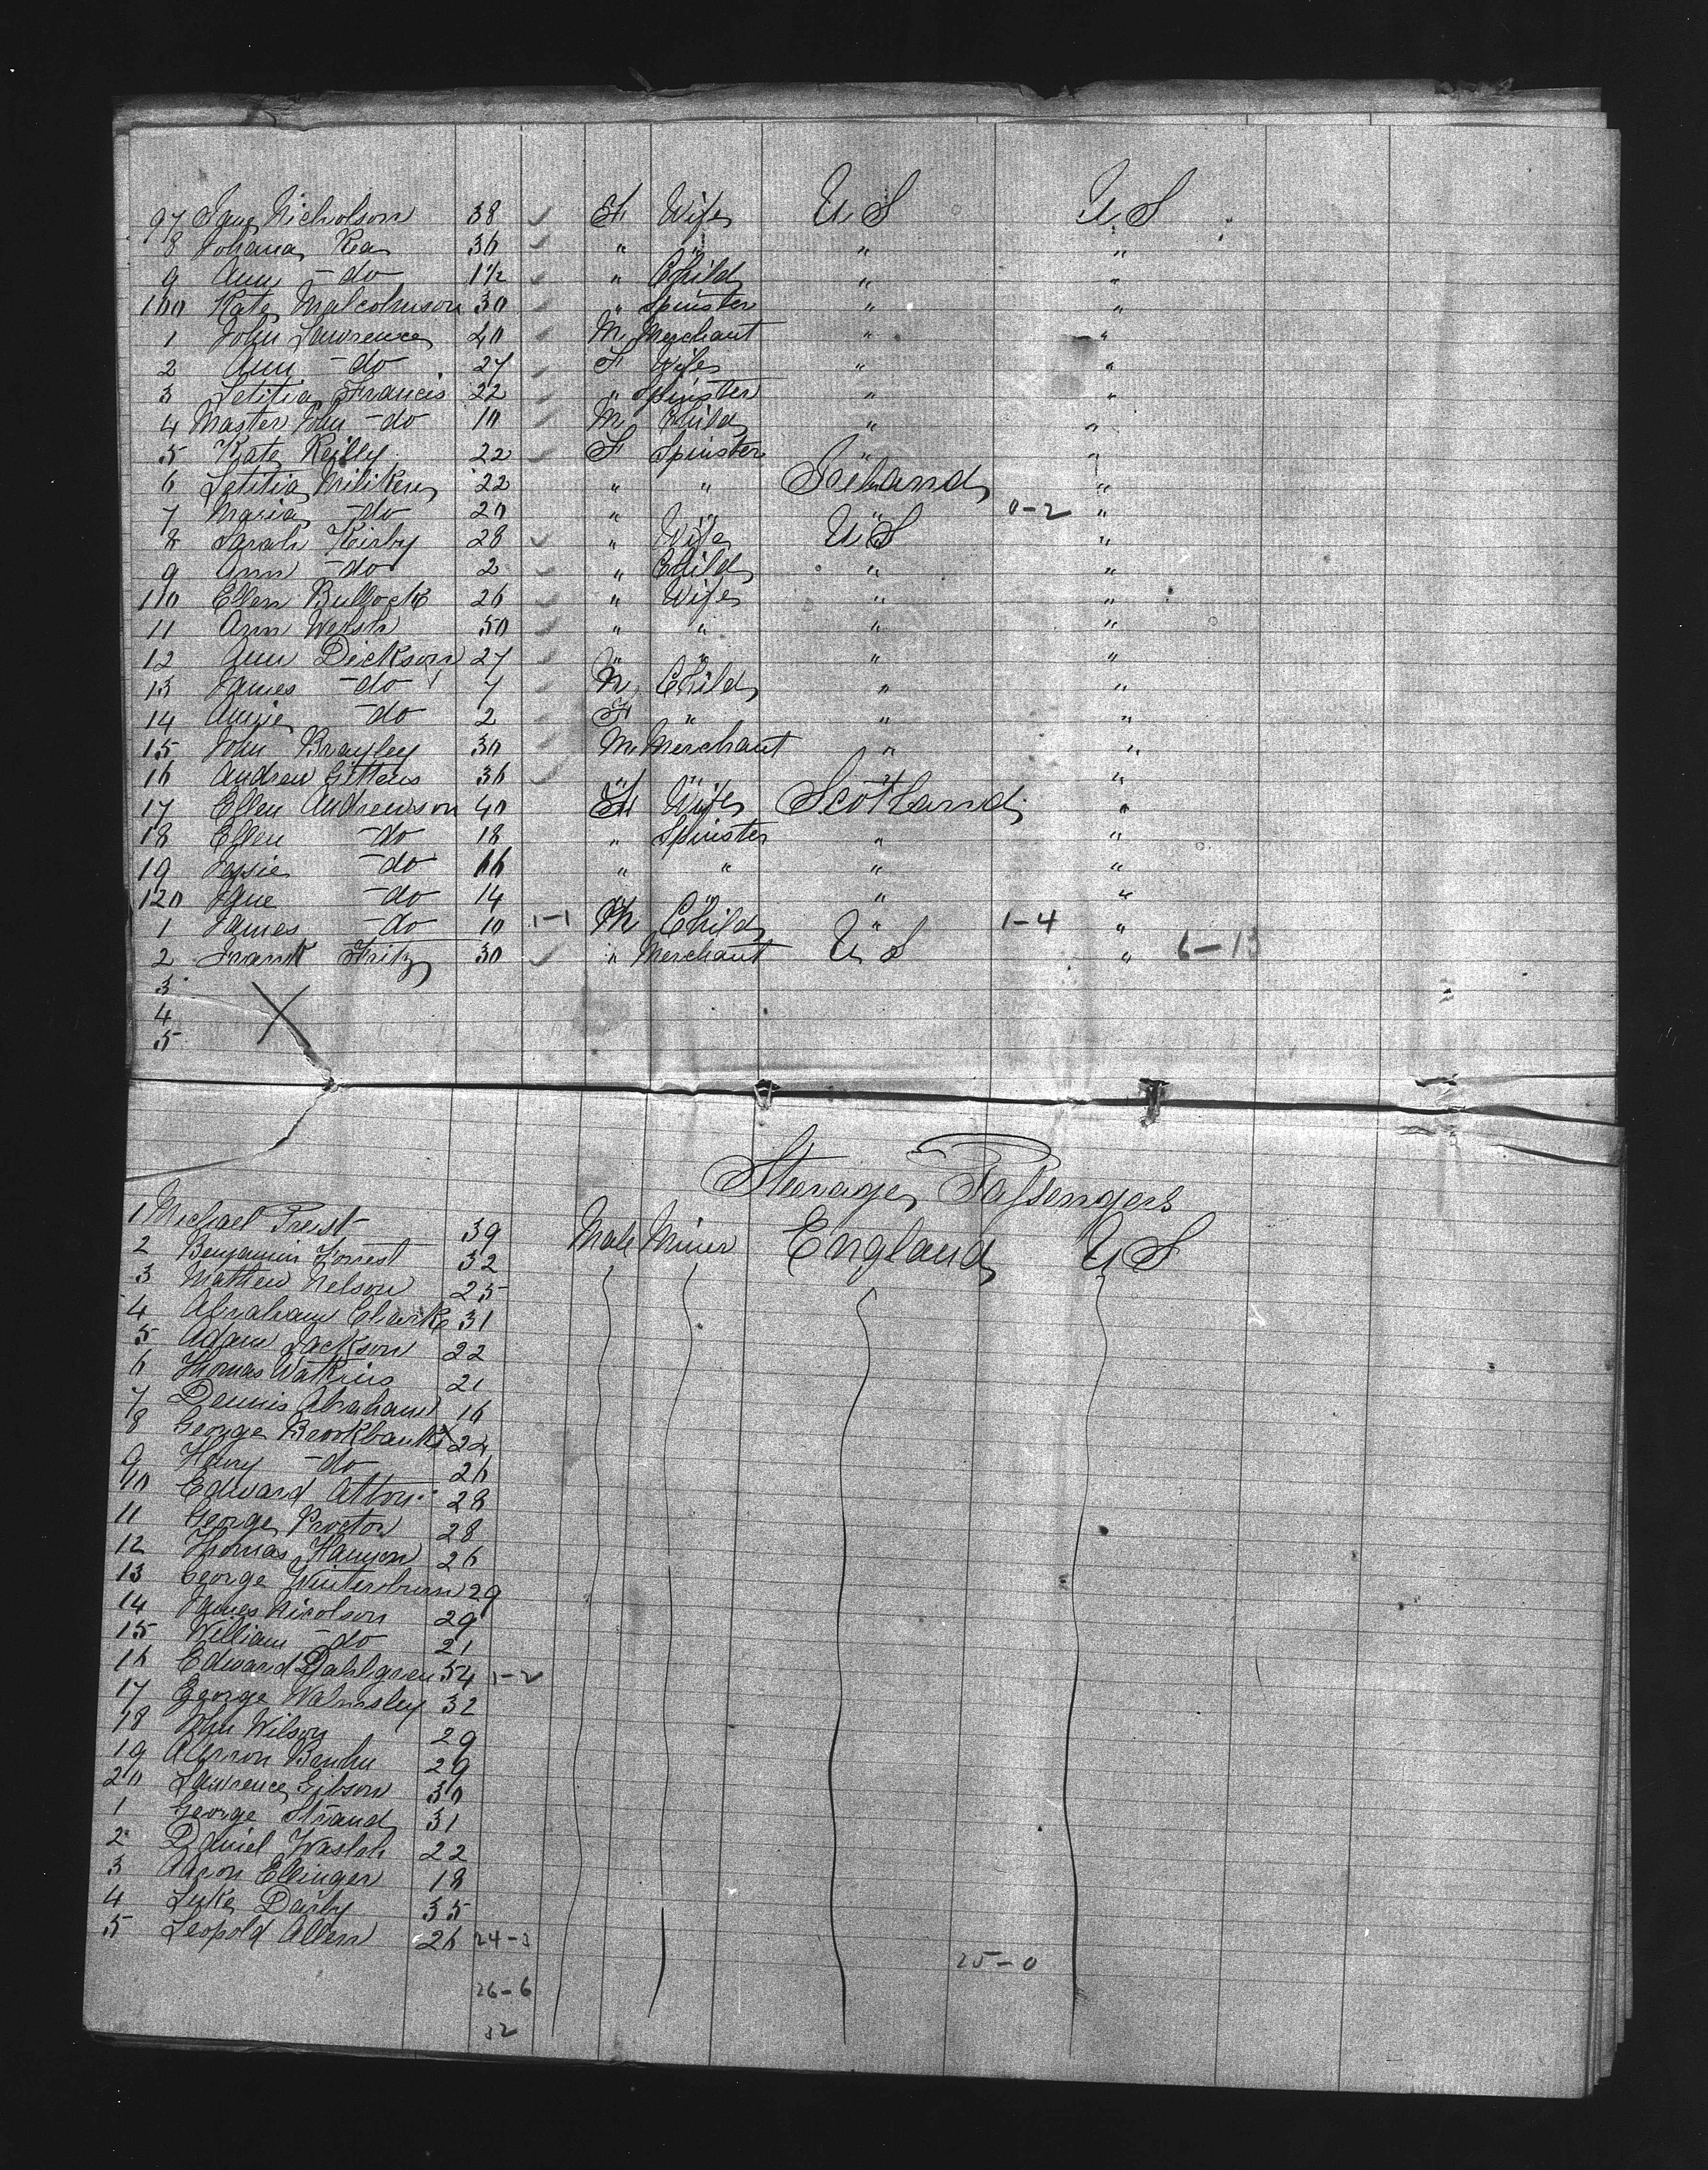 97 Jane Nicholson 38 F Wife U S U S
8 Johana Rea 36 " " " "
9 Ann - do 1½ " Child " "
100 Kate Malcolmson 30 " Spinster " "
1 John Lawrence 40 M Merchant " "
2 Ann - do 27 F Wife " "
3 Letitia Francis 22 " Spinster " "
4 Master John - do 10 M Child " "
5 Kate Reilly 22 F Spinster " "
6 Letitia Miliken 22 " " Ireland "
7 Maria - do 20 " " " 0-2 "
8 Sarah Kirby 28 " Wife U S "
9 Ann - do 2 " Child " "
110 Ellen Bullock 26 " Wife " "
11 Ann Welsh 50 " " " "
12 Ann Dickson 27 " " " "
13 James - do 7 M Child " "
14 Annie - do 2 F " " "
15 John Brayley 30 M Merchant " "
16 Andrew Gittens 36 " " " "
17 Ellen Andrewson 40 F Wife Scotland "
18 Ellen - do 18 " Spinster " "
19 Jessie - do 16 " " " "
120 Jane - do 14 " " " "
1 James - do 10 1-1 M Child " 1-4 "
2 Frank Fritz 30 " Merchant U S " 6-13
3
4
5
Sterage Passengers
1 Michael Preist 39 Male Miner England U S
2 Benjamin Forrest 32
3 Mathew Nelson 25
4 Abraham Clarke 31
5 Adam Jackson 22
6 Thomas Watkins 21
7 Dennis Abraham 16
8 George Brookbanks 22
9 Henry - do 26
10 Edward Atton 28
11 George Proctor 28
12 Thomas Hanyon 26
13 George Winterburn 29
14 James Nicolson 29
15 William - do 21
16 Edward Dahlgren 54 1-2
17 George Walmsley 32
18 John Wilson 29
19 29
20 Lawrence Gibson 30
1 George Strand 31
2 Daniel Waslsh 22
3 Aaron Ellinger 18
4 Luke Darby 35
5 Leopold Allen 26 24-3
25-0
26-6
32